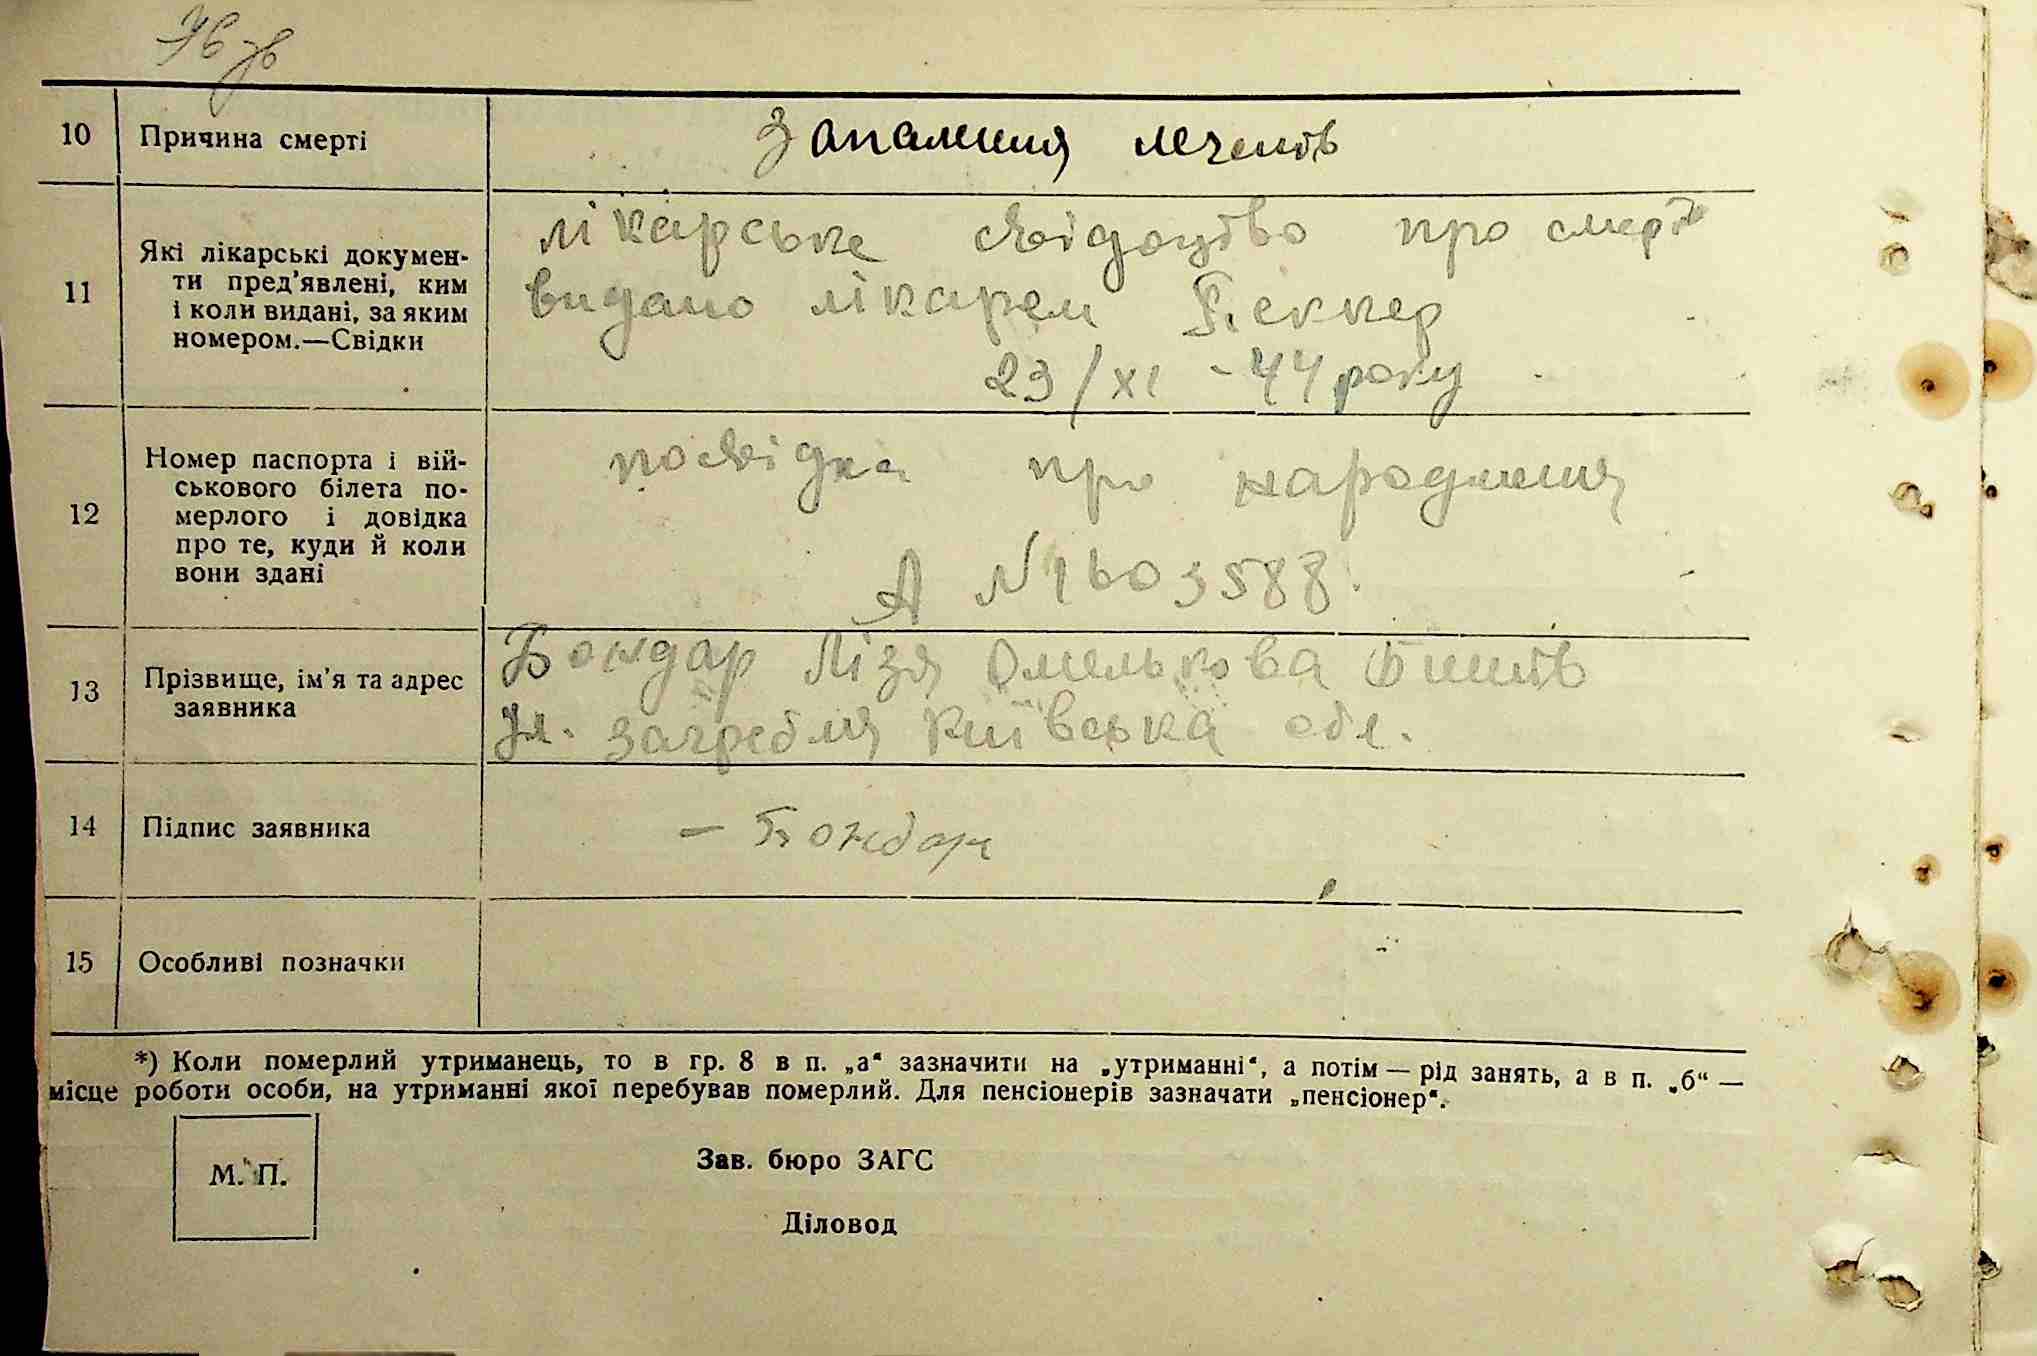 10 Причина смерті запалення легенів
11 Які лікарські докумен-
ти пред'явлені, ким
і коли видані, за яким
номером.—Свідки
лікарське свідоцтво про смерть
видано лікарем Беккер
23/XI - 44 року
12 Номер паспорта і вій-
ськового білета по-
мерлого і довідка
про те, куди й коли
вони здані
посвідка про народження
А N 1603588.
13 Прізвище, ім'я та адрес
заявника
Бондар Лізя Омелькова
ул. Загребля Київська обл.
14 Підпис заявника — Бондар
15 Особливі позначки
*) Коли померлий утриманець, то в гр. 8 в п. „а“ зазначити на „утриманні“, а потім — рід занять, а в п. „б“ —
місце роботи особи, на утриманні якої перебував померлий. Для пенсіонерів зазначати „пенсіонер“.
М. П.
Зав. бюро ЗАГС
Діловод